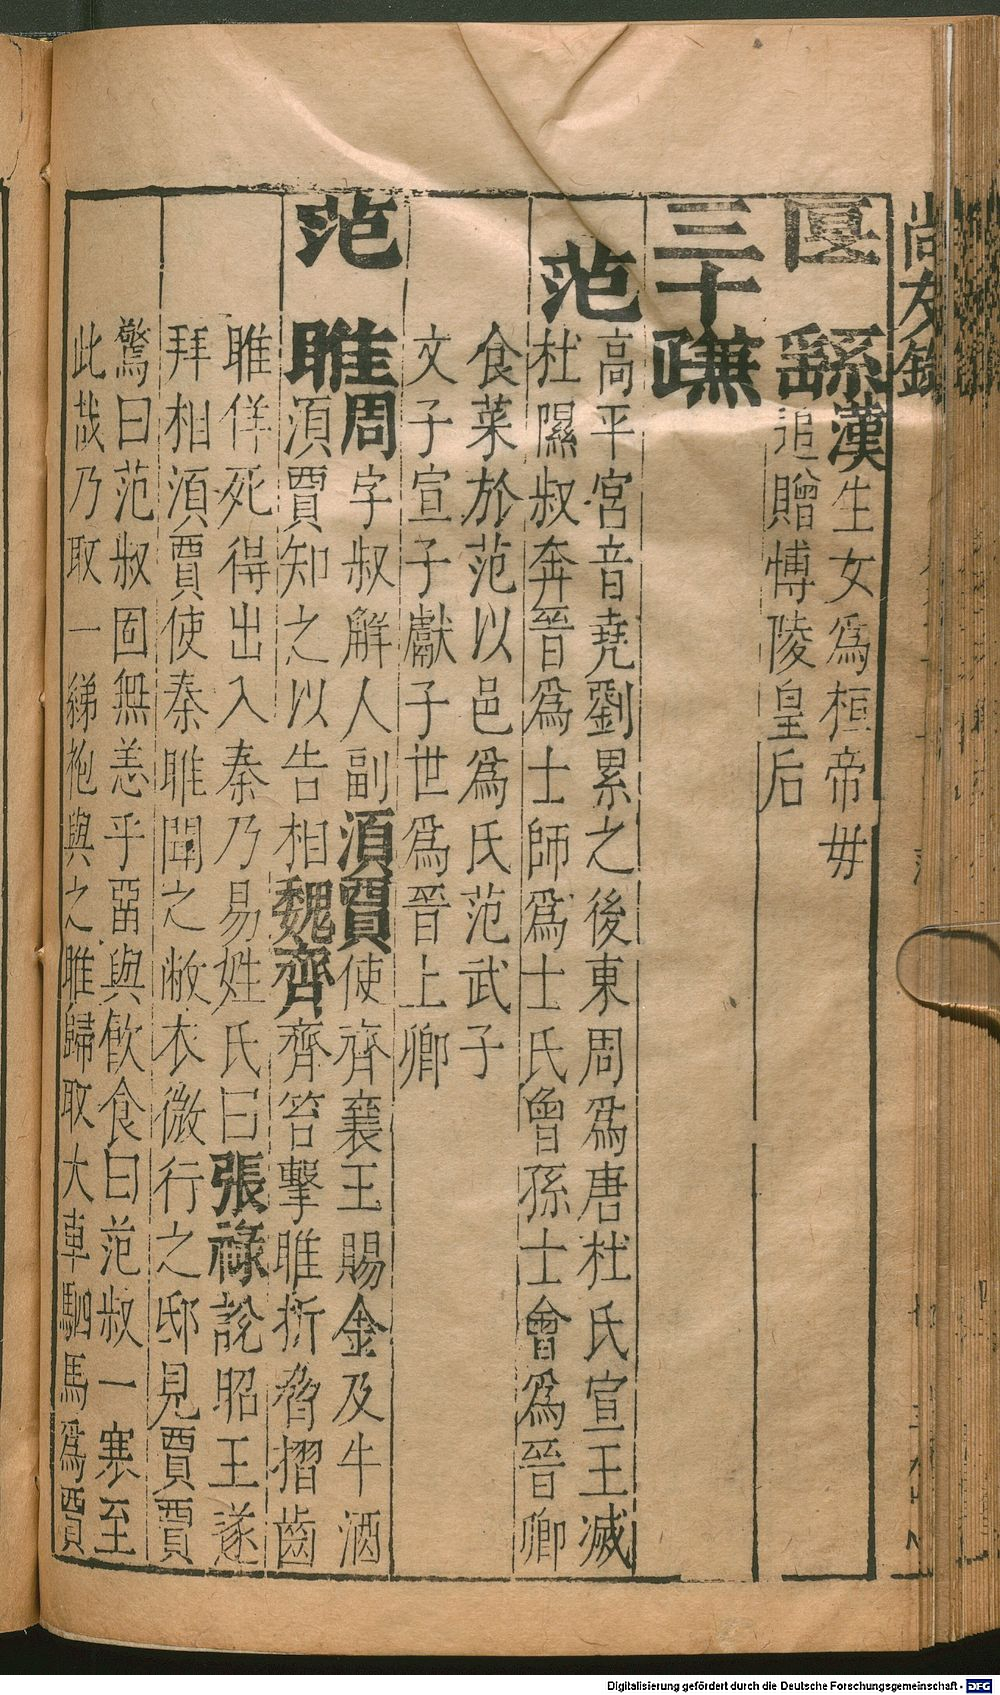 尚友錄
匽 繇漢生女爲桓帝毋
追贈愽陵皇后
三十
范 高平宮音堯劉累之後東周爲唐杜氏宣王滅
杜隰叔奔晉爲士師爲士氏曾孫士會爲晉卿
食菜於范以邑爲氏范武子
文子宣子獻子世爲晉上卿
范 睢周字叔觧人副湏賈使齊襄王賜金及牛酒
湏賈知之以告相魏齊齊笞擊睢折脅摺齒
睢佯死得出入秦乃易姓氏曰張祿說昭王遂
拜相湏賈使秦睢聞之敝衣微行之邸見賈賈
驚曰范叔固無恙乎畱與飮食曰范叔一寒至
此哉乃取一綈袍與之睢歸取大車駟馬爲賈
Digitalisierung gefördert durch die Deutsche Forschungsgemeinschaft - DFG